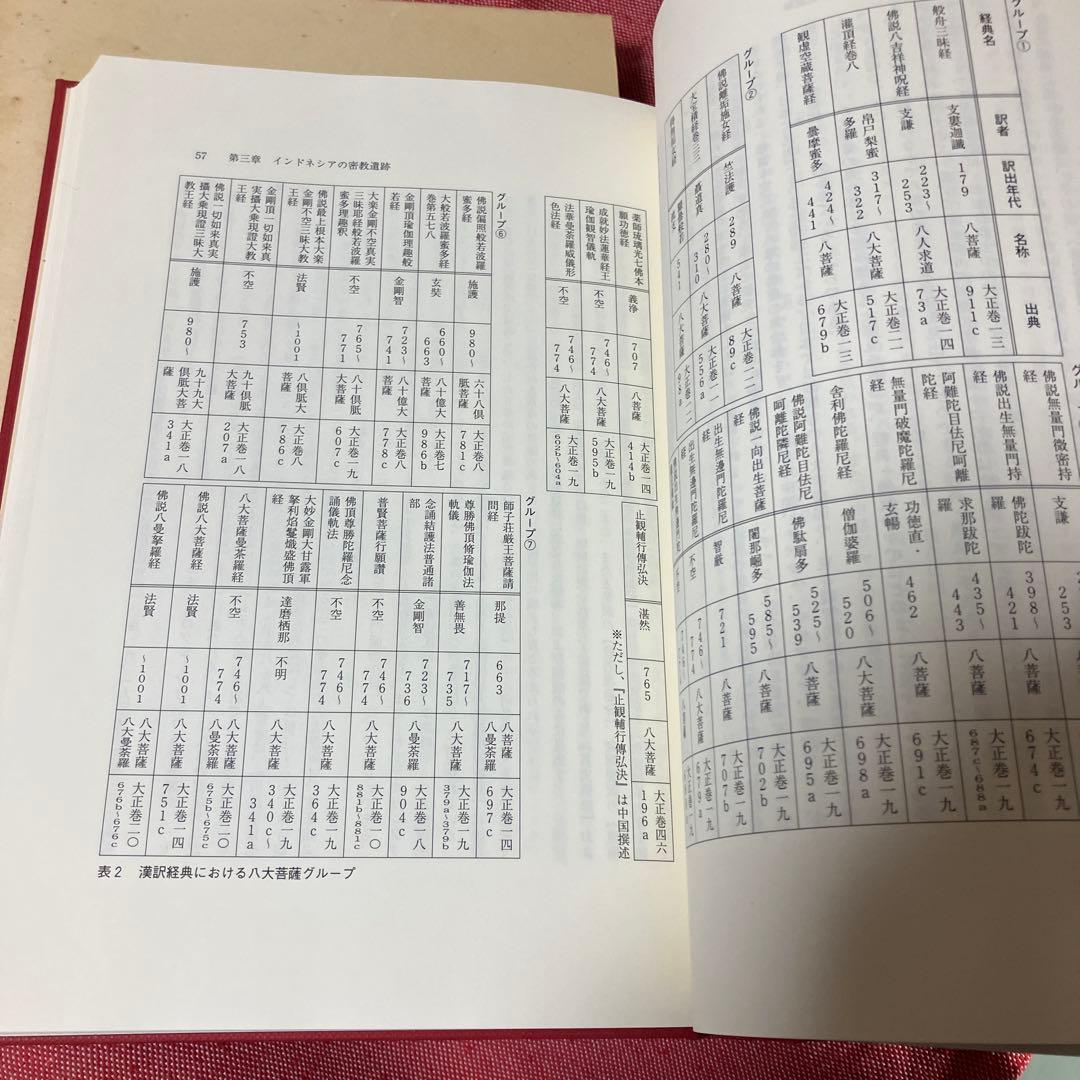 グループ①
経典名 訳者 訳出年代 名称 出典
般舟三昧経 支婁迦讖 179 八菩薩 大正巻一三 911c
佛説八吉祥神呪経 支謙 223〜253 八人求道 大正巻一四 73a
灌頂経巻八 帛尸梨蜜多羅 317〜322 八大菩薩 大正巻二一 517c
観虚空蔵菩薩経 曇摩蜜多 424〜441 八菩薩 大正巻一三 679b
グループ②
佛説離垢施女経 竺法護 289 八菩薩 大正巻一二 89c
大宝積経巻三三 聶道真 280〜310 八大菩薩 大正巻一一 556a
541 八大菩薩 98a
佛説無量門微密持経 253
佛説出生無量門持経 佛陀跋陀羅 398〜421 674c
阿難陀目佉尼呵離陀経 求那跋陀羅 435〜443 八菩薩 大正巻一九 687c〜688a
無量門破魔陀羅尼経 功徳直・玄暢 462 八菩薩 大正巻一九 691c
舎利佛陀羅尼経 僧伽婆羅 506〜520 八菩薩 大正巻一九 698a
佛説阿難陀目佉尼呵離陀隣尼経 佛駄扇多 525〜539 八菩薩 大正巻一九 695a
佛説一向出生菩薩経 闍那崛多 585〜595 八菩薩 大正巻一九 702b
出生無邊門陀羅尼経 智厳 721 八菩薩 大正巻一九 707b
出生無邊門陀 不空 746〜774 八菩薩 大正巻一九 679a
57 第三章 インドネシアの密教遺跡
薬師琉璃光七佛本願功徳経 義浄 707 八菩薩 大正巻一四 414b
成就妙法蓮華経王瑜伽観智儀軌 不空 746〜774 八大菩薩 大正巻一九 595b
法華曼荼羅威儀形色法経 不空 746〜774 八大菩薩 大正巻一九 602b〜604a
止観輔行傳弘決 湛然 765 八大菩薩 大正巻四六 196a
※ただし、『止観輔行傳弘決』は中国撰述
グループ⑥
佛説偏照般若波羅蜜多経 施護 980〜 六十八倶胝菩薩 大正巻八 781c
大般若波羅蜜多経巻第五七八 玄奘 660〜663 八十億大菩薩 大正巻七 986b
金剛頂瑜伽理趣般若経 金剛智 723〜741 八十億大菩薩 大正巻八 778c
大楽金剛不空真実三昧耶経般若波羅蜜多理趣釈 不空 765〜771 八十倶胝大菩薩 大正巻一九 607c
佛説最上根本大楽金剛不空三昧大教王経 法賢 〜1001 八倶胝大菩薩 大正巻八 786c
金剛頂一切如来真実攝大乗現證大教王経 不空 753 九十倶胝大菩薩 大正巻一八 207a
佛説一切如来真実攝大乗現證三昧大教王経 施護 980〜 九十九大倶胝大菩薩 大正巻一八 341a
グループ⑦
師子荘厳王菩薩請問経 那提 663 八菩薩 八曼荼羅 大正巻一四 697c
尊勝佛頂脩瑜伽法軌儀 善無畏 717〜735 八大菩薩 大正巻一九 379a〜379b
念誦結護法普通諸部 金剛智 723〜736 八曼荼羅 大正巻一八 904c
普賢菩薩行願讃 不空 746〜774 八大菩薩 大正巻一〇 881b〜881c
佛頂尊勝陀羅尼念誦儀軌法 不空 746〜774 八大菩薩 大正巻一九 364c
大妙金剛大甘露軍拏利焰鬘熾盛佛頂経 達磨栖那 不明 八大菩薩 大正巻一九 340c〜341a
八大菩薩曼荼羅経 不空 746〜774 八大菩薩 八曼荼羅 大正巻二〇 675b〜675c
佛説八大菩薩経 法賢 〜1001 八大菩薩 大正巻一四 751c
佛説八曼拏羅経 法賢 〜1001 八大菩薩 八大曼荼羅 大正巻二〇 676b〜676c
表2 漢訳経典における八大菩薩グループ